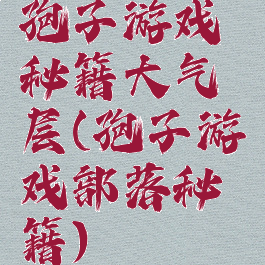 孢子游戏
秘籍大气
层(孢子游
戏部落秘
籍)